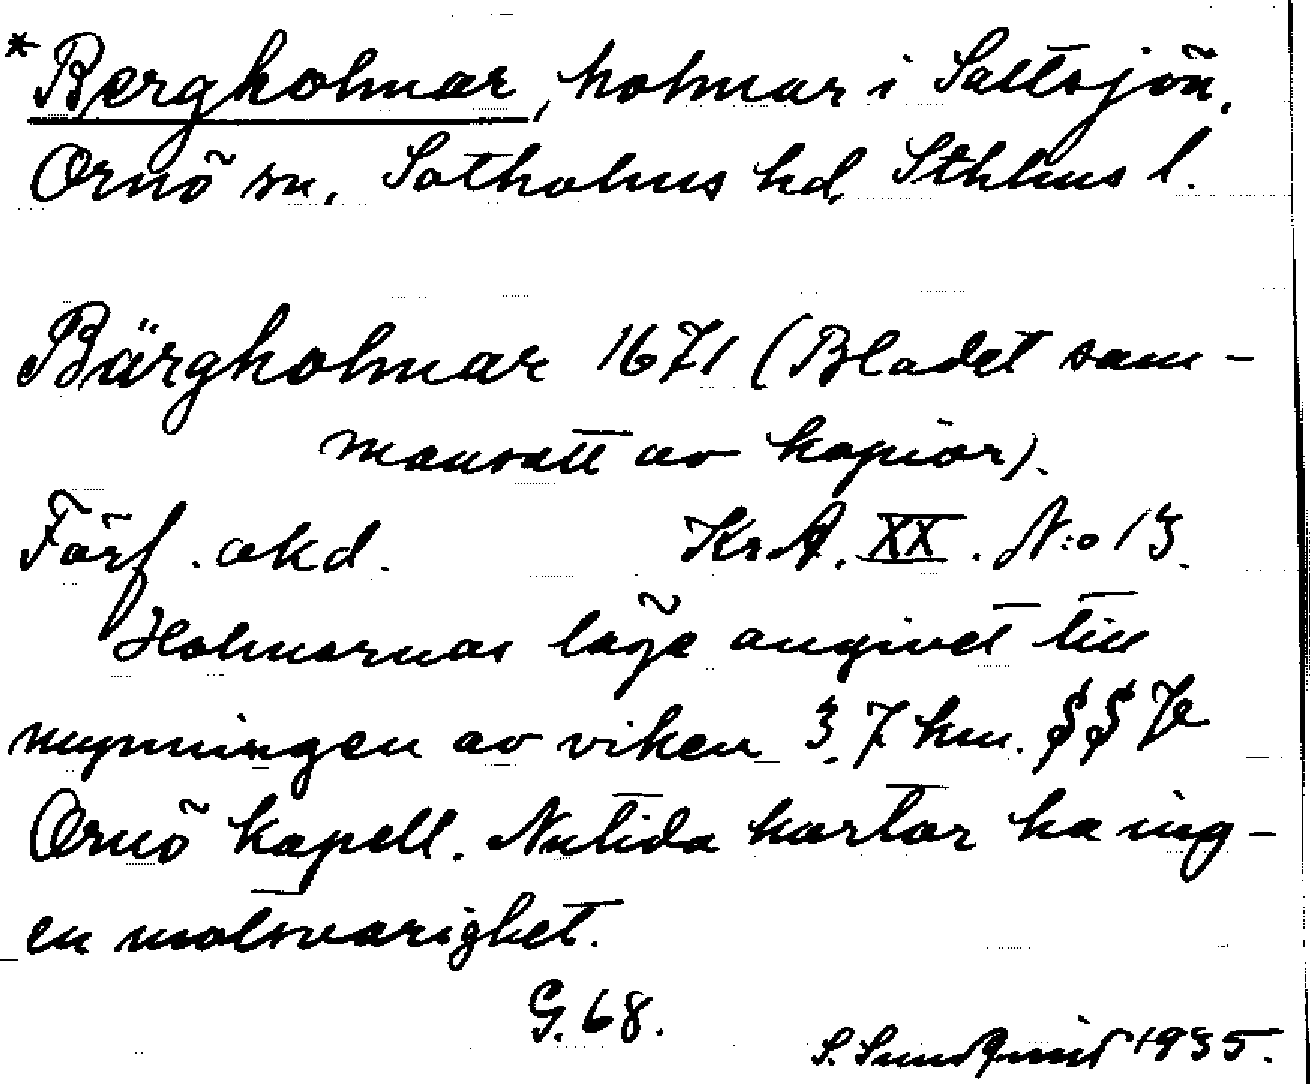 *Bergholmar, holmar i Saltsjön,
Ornö sn, Sotholms hd, Sthlms l.
Bärgholmar 1671 (Bladet sam-
mansatt av kopior).
Förf. okd. Kr.A. XX. N:o 13.
Holmarnas läge angivet till
mynningen av viken 3,7 km. SSV
Ornö kapell. Nutida kartor ha ing-
en motsvarighet.
G. 68.
S. Sundqvist 1935.